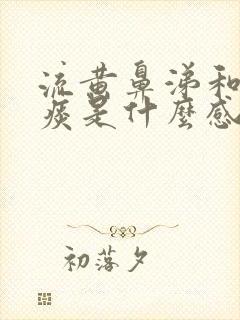 流黄鼻涕和
痰是什麼感
初落夕